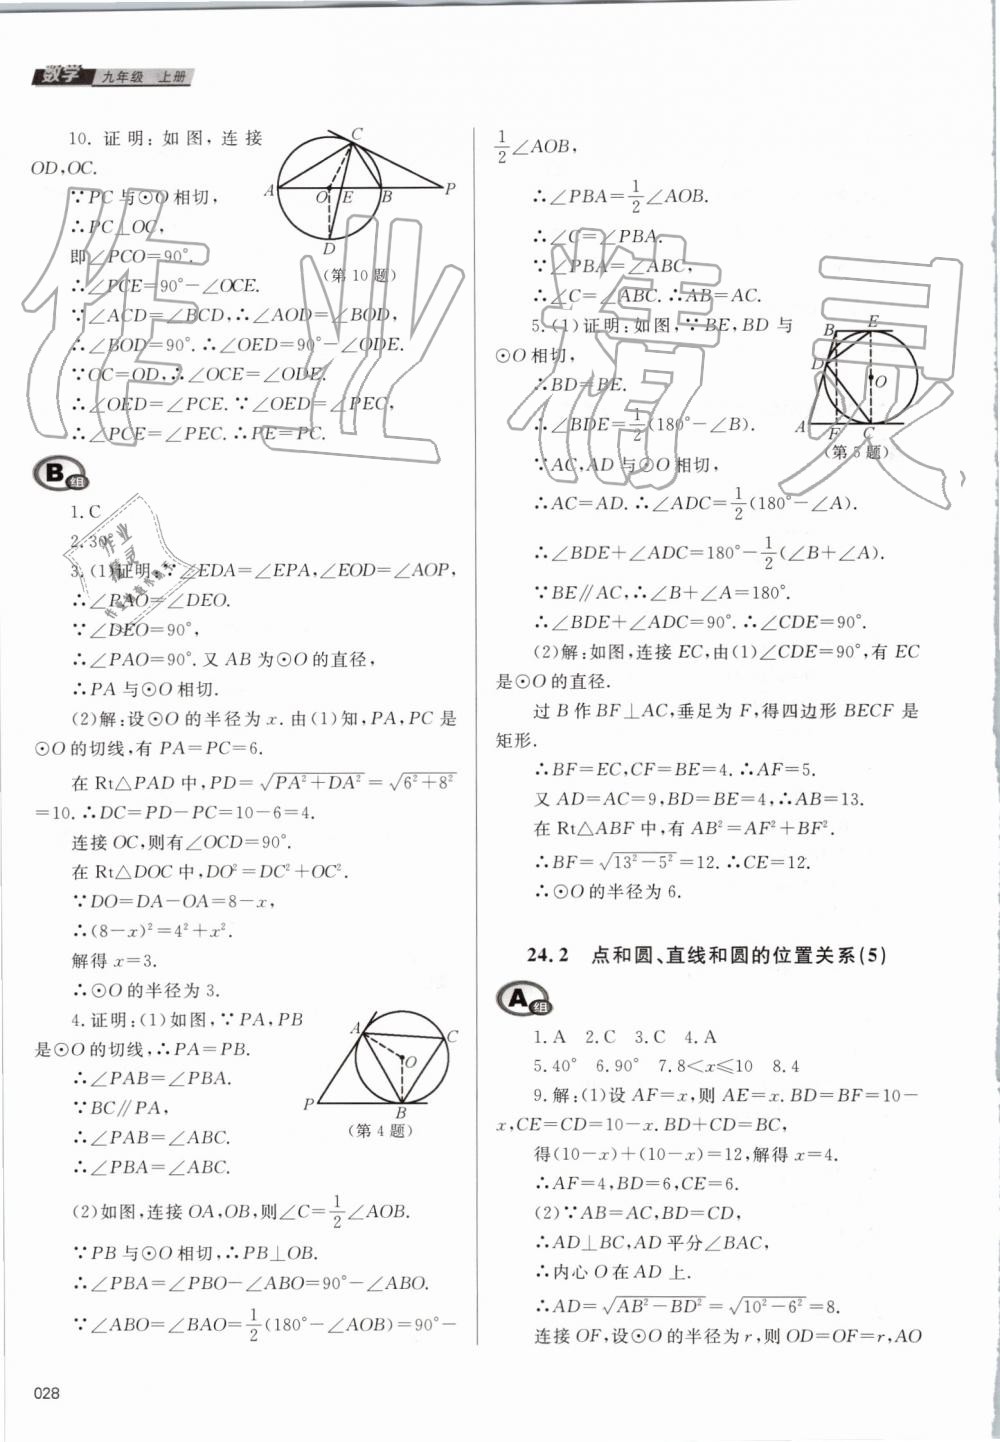 数学 九年级 上册
10. 证明:如图,连接
OD,OC.
∵PC与⊙O相切,
∴PC⊥OC,
即∠PCO=90°.
∴∠PCE=90°-∠OCE.
∵∠ACD=∠BCD,∴∠AOD=∠BOD,
∴∠BOD=90°.∴∠OED=90°-∠ODE.
∵OC=OD,∴∠OCE=∠ODE.
∴∠OED=∠PCE.∵∠OED=∠PEC,
∴∠PCE=∠PEC.∴PE=PC.
C
A O E B P
D
(第10题)
B组
1.C
2.30°
3.(1)证明:∵∠EDA=∠EPA,∠EOD=∠AOP,
∴∠PAO=∠DEO.
∵∠DEO=90°,
∴∠PAO=90°.又AB为⊙O的直径,
∴PA与⊙O相切.
(2)解:设⊙O的半径为x.由(1)知,PA,PC是
⊙O的切线,有PA=PC=6.
在Rt△PAD中,PD=√(PA²+DA²)=√(6²+8²)
=10.∴DC=PD-PC=10-6=4.
连接OC,则有∠OCD=90°.
在Rt△DOC中,DO²=DC²+OC².
∵DO=DA-OA=8-x,
∴(8-x)²=4²+x².
解得x=3.
∴⊙O的半径为3.
4.证明:(1)如图,∵PA,PB
是⊙O的切线,∴PA=PB.
∴∠PAB=∠PBA.
∵BC∥PA,
∴∠PAB=∠ABC.
∴∠PBA=∠ABC.
A C
O
P B
(第4题)
(2)如图,连接OA,OB,则∠C=1/2∠AOB.
∵PB与⊙O相切,∴PB⊥OB.
∴∠PBA=∠PBO-∠ABO=90°-∠ABO.
∵∠ABO=∠BAO=1/2(180°-∠AOB)=90°-
1/2∠AOB,
∴∠PBA=1/2∠AOB.
∴∠C=∠PBA.
∵∠PBA=∠ABC,
∴∠C=∠ABC.∴AB=AC.
5.(1)证明:如图,∵BE,BD与
⊙O相切,
∴BD=BE.
∴∠BDE=1/2(180°-∠B).
∵AC,AD与⊙O相切,
∴AC=AD.∴∠ADC=1/2(180°-∠A).
∴∠BDE+∠ADC=180°-1/2(∠B+∠A).
∵BE∥AC,∴∠B+∠A=180°.
∴∠BDE+∠ADC=90°.∴∠CDE=90°.
B E
D O
A F C
(第5题)
(2)解:如图,连接EC,由(1)∠CDE=90°,有EC
是⊙O的直径.
过B作BF⊥AC,垂足为F,得四边形BECF是
矩形.
∴BF=EC,CF=BE=4.∴AF=5.
又AD=AC=9,BD=BE=4,∴AB=13.
在Rt△ABF中,有AB²=AF²+BF².
∴BF=√(13²-5²)=12.∴CE=12.
∴⊙O的半径为6.
24.2 点和圆、直线和圆的位置关系(5)
A组
1.A 2.C 3.C 4.A
5.40° 6.90° 7.8<x≤10 8.4
9.解:(1)设AF=x,则AE=x.BD=BF=10-
x,CE=CD=10-x.BD+CD=BC,
得(10-x)+(10-x)=12,解得x=4.
∴AF=4,BD=6,CE=6.
(2)∵AB=AC,BD=CD,
∴AD⊥BC,AD平分∠BAC,
∴内心O在AD上.
∴AD=√(AB²-BD²)=√(10²-6²)=8.
连接OF,设⊙O的半径为r,则OD=OF=r,AO
028
作业精灵
作业
精灵